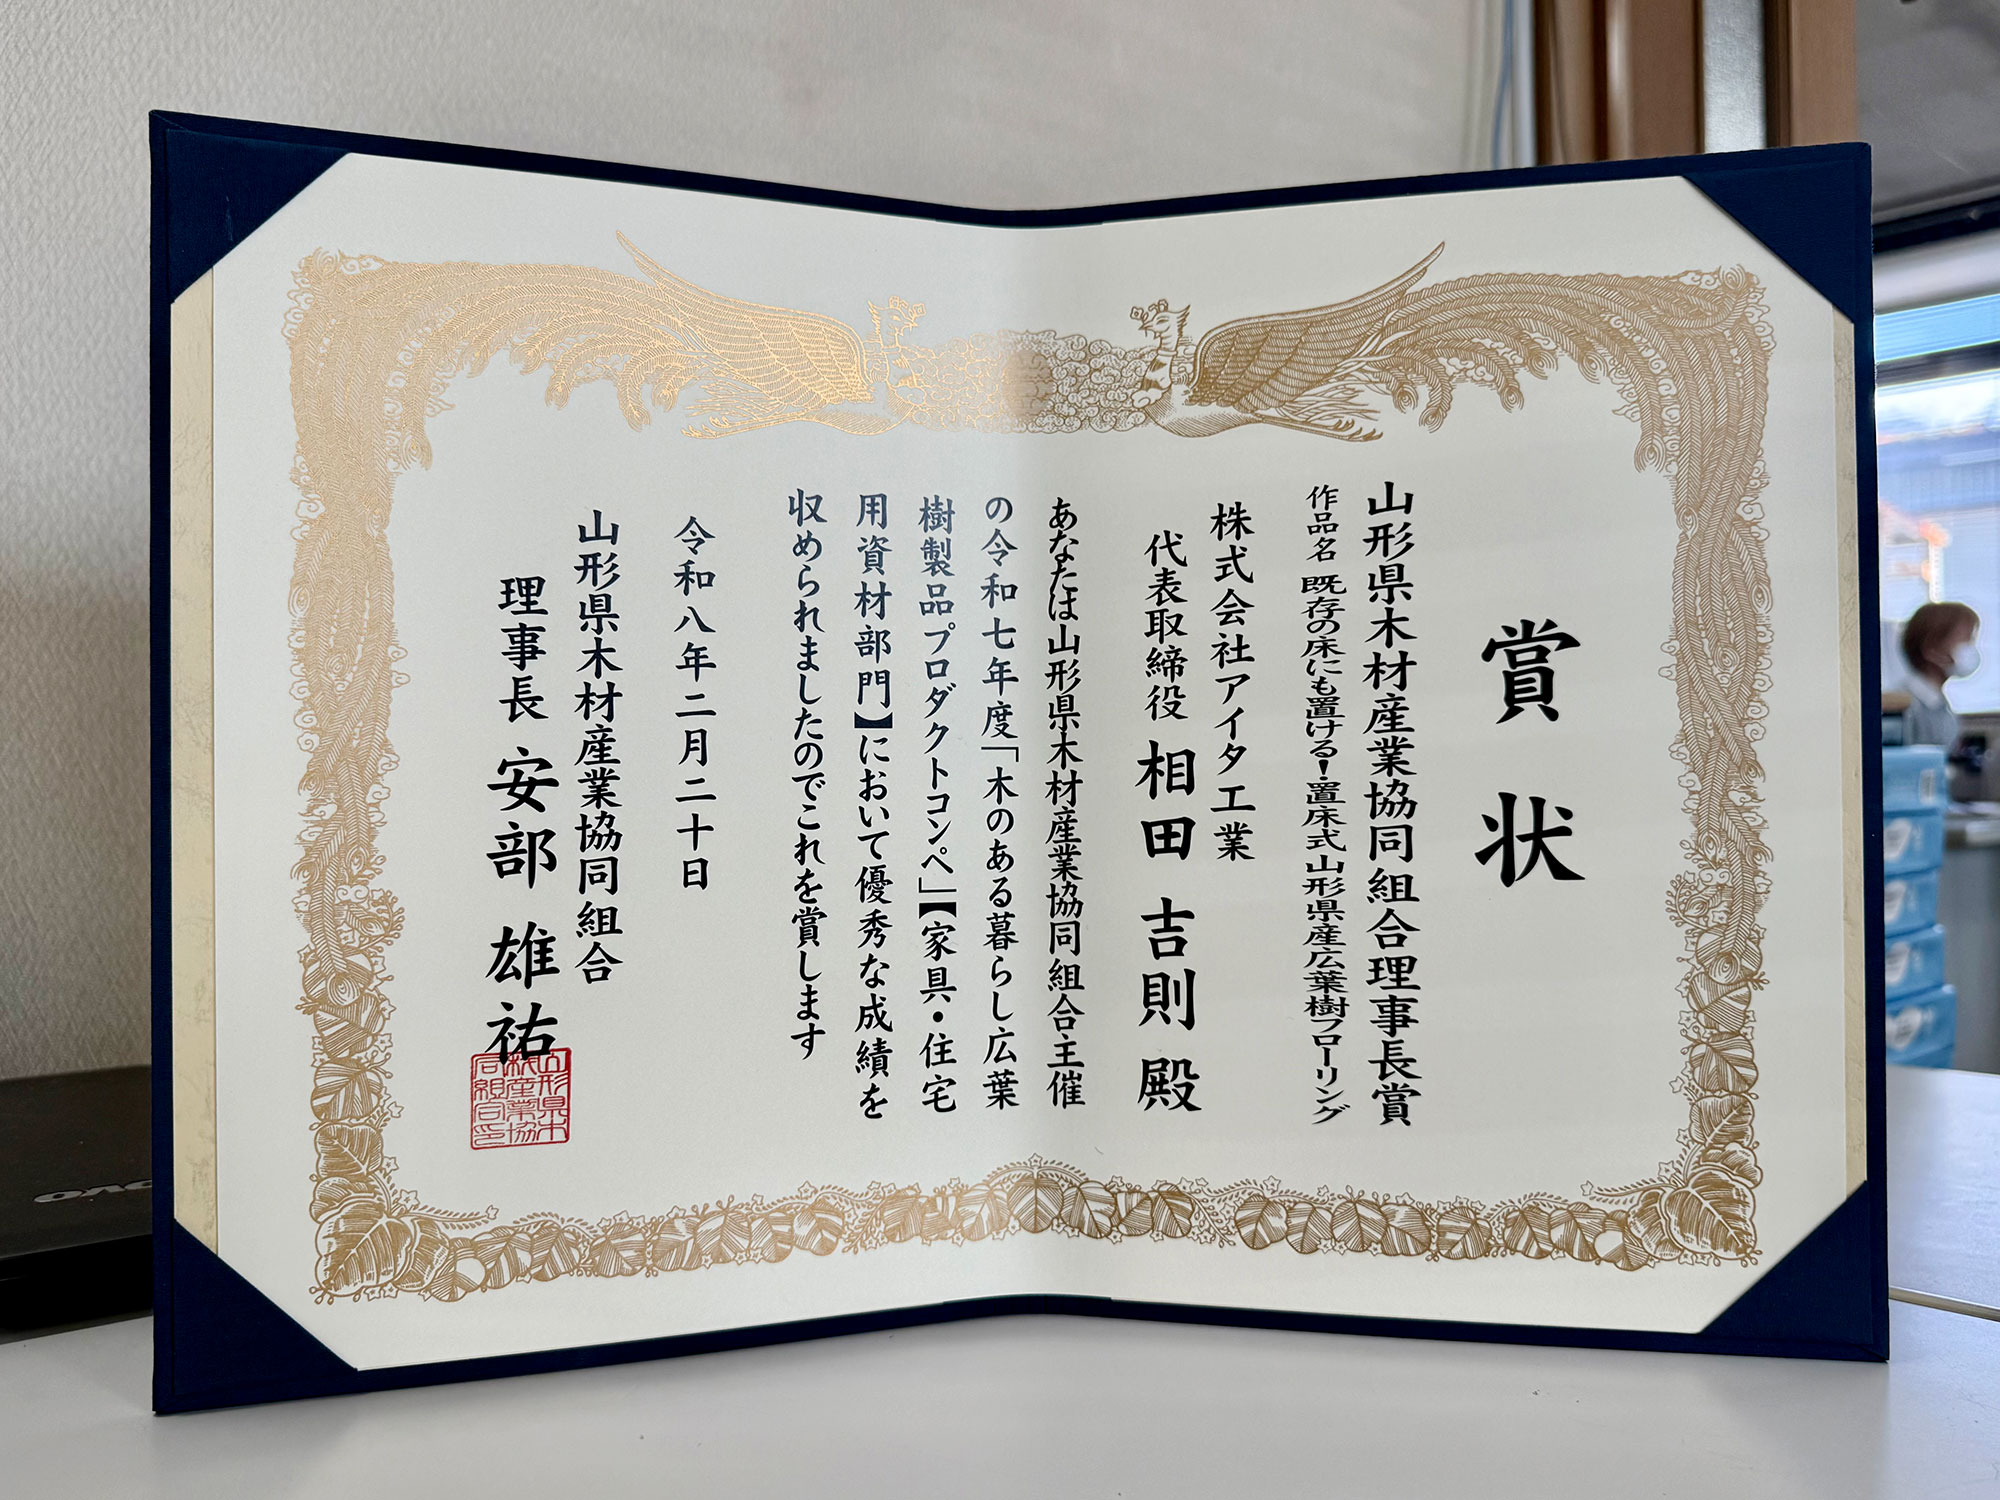 賞状
山形県木材産業協同組合理事長賞
作品名 既存の床にも置ける!置床式山形県産広葉樹フローリング
株式会社アイタ工業
代表取締役 相田 吉則 殿
あなたは山形県木材産業協同組合主催
の令和七年度「木のある暮らし広葉
樹製品プロダクトコンペ」【家具・住宅
用資材部門】において優秀な成績を
収められましたのでこれを賞します
令和八年二月二十日
山形県木材産業協同組合
理事長 安部 雄祐